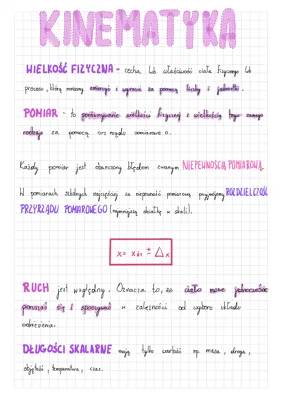 KINEMATYKA
WIELKOŚĆ FIZYCZNA - cecha, lub właściwość ciała fizycznego lub
procesu, którą możemy zmierzyć i wyrazić za pomocą liczby i jednostki.
POMIAR - to porównywanie wielkości fizycznej z wielkością tego samego
rodzaju za pomocą przyrządu pomiarowego.
Każdy pomiar jest obarczony błędem zwanym NIEPEWNOŚCIĄ POMIAROWĄ.
W pomiarach szkolnych najczęściej za niepewność pomiarową przyjmujemy ROZDZIELCZOŚĆ
PRZYRZĄDU POMIAROWEGO (najmniejszą działkę w skali).
x = ± Δx
RUCH jest względny. Oznacza to, że ciało może jednocześnie
poruszać się i spoczywać w zależności od wyboru układu
odniesienia.
DŁUGOŚCI SKALARNE mają tylko wartość np. masa, droga,
objętość, temperatura, czas.